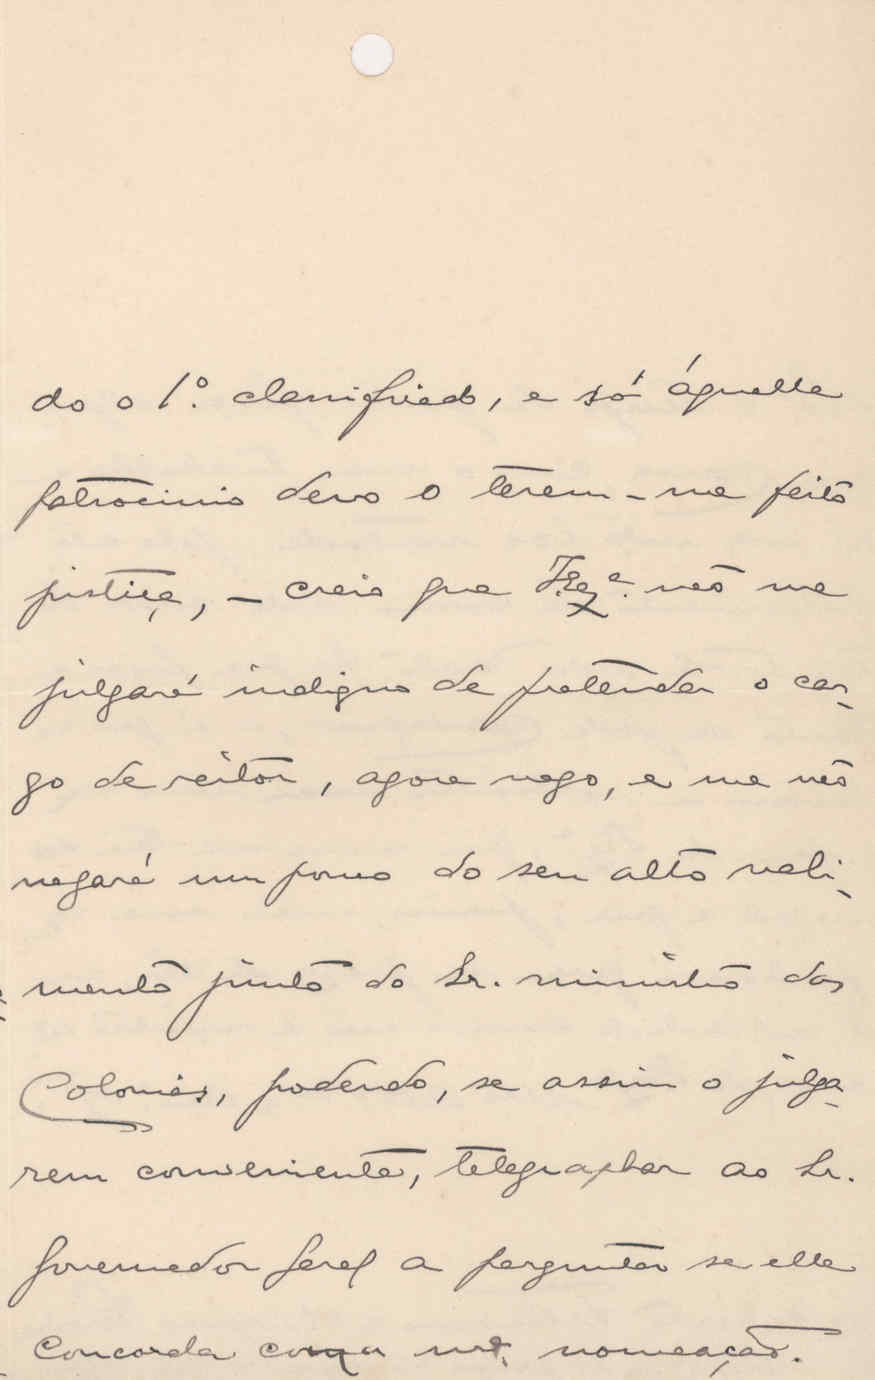 do o 1º. classificado, e só áquelle
patrocinio devo o terem-me feito
justiça, – creio que V. Exª. não me
julgará indigno de pretender o car-
go de reitor, agora vago, e me não
negará um pouco do seu alto vali-
mento junto do Sr. ministro das
Colonias, podendo, se assim o julga-
rem conveniente, telegraphar ao Sr.
Governador Geral a perguntar se elle
concorda com a mª. nomeação.